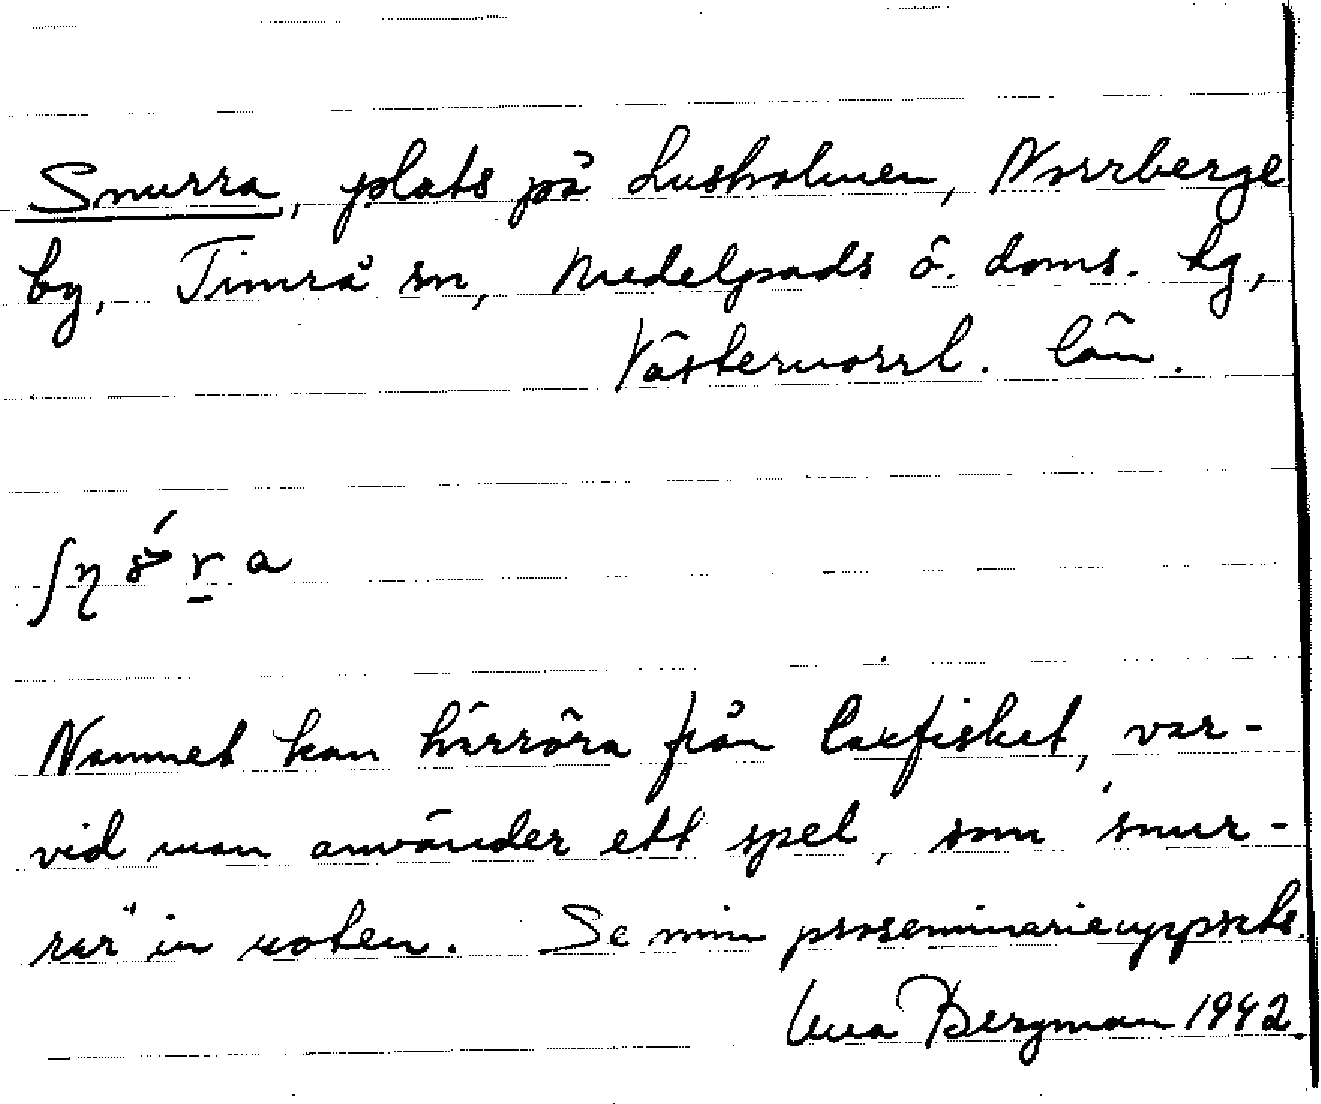 Snurra, plats på Lusholmen, Norrberge
by, Timrå sn, Medelpads ö. doms. hg,
Västernorrl. län.
Namnet kan härröra från laxfisket, var-
vid man använder ett spel, som "snur-
rar" in noten. Se min proseminarieuppsats.
Bergman 1942.